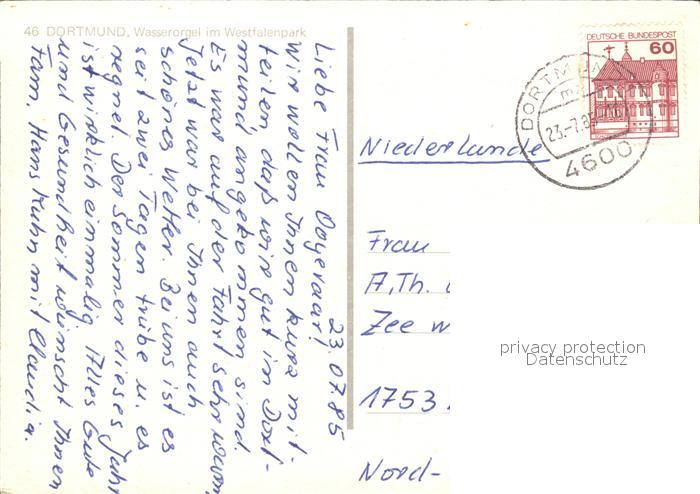 46 DORTMUND, Wasserorgel im Westfalenpark
23.07.85
Liebe Frau Oogevaar!
Wir wollen Ihnen kurz mit-
teilen, daß wir gut in Dort-
mund angekommen sind.
Es war auf der Fahrt sehr warm.
Jetzt war bei Ihnen auch
schönes Wetter. Bei uns ist es
seit zwei Tagen trübe u. es
regnet. Der Sommer dieses Jahr
ist wirklich einmalig. Alles Gute
und Gesundheit wünscht Ihnen
Fam. Hans Kuhn mit Claudia.
DEUTSCHE BUNDESPOST
60
DORTMUND
23.-7.85
4600
Niederlande
Frau
A. Th.
Zee w
1753
Nord-
privacy protection
Datenschutz